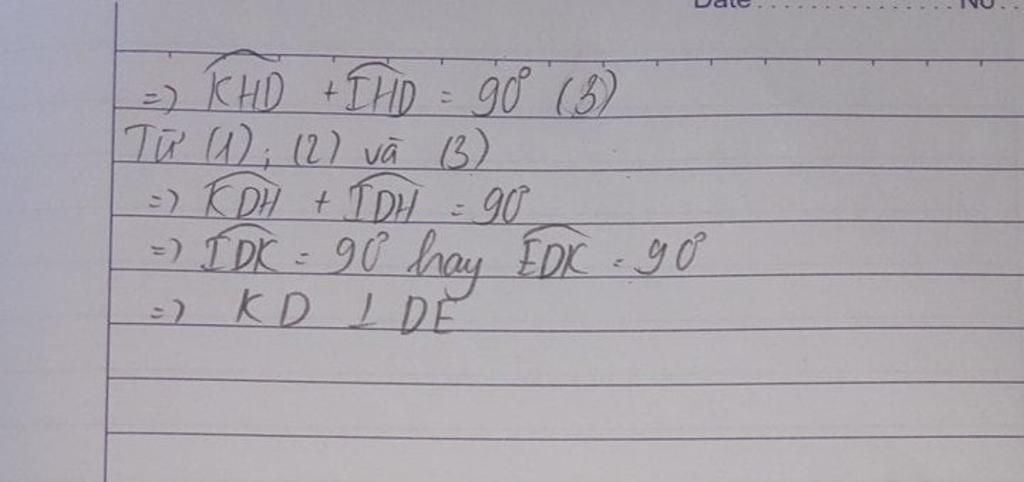 Date.................No...
=> KHD + IHD = 90° (3)
Từ (1); (2) và (3)
=> KDH + IDH = 90°
=> IDK = 90° hay EDK = 90°
=> KD ⊥ DE